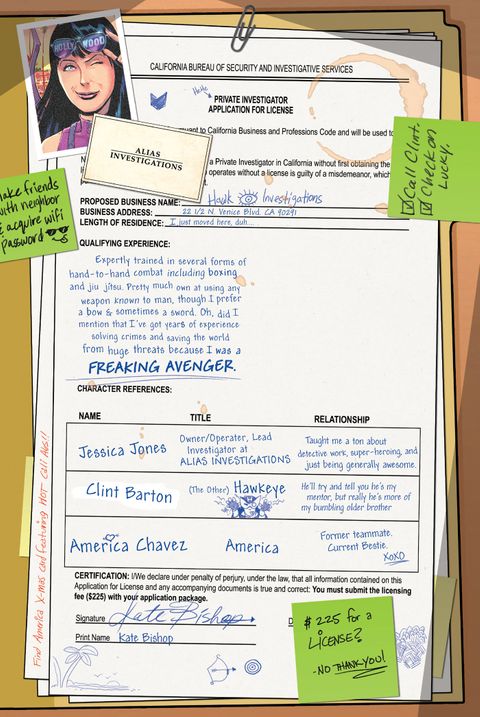 HOLLY WOOD
CALIFORNIA BUREAU OF SECURITY AND INVESTIGATIVE SERVICES
PRIVATE INVESTIGATOR
APPLICATION FOR LICENSE
to California Business and Professions Code and will be used to
a Private Investigator in California without first obtaining the
operates without a license is guilty of a misdemeanor, which
ALIAS
INVESTIGATIONS
Call Clint.
Check on
Lucky.
Make friends
with neighbor
& acquire wifi
password
PROPOSED BUSINESS NAME: Hawk Investigations
BUSINESS ADDRESS: 22 1/2 N. Venice Blvd. CA 90291
LENGTH OF RESIDENCE: I just moved here, duh...
QUALIFYING EXPERIENCE:
Expertly trained in several forms of
hand-to-hand combat including boxing
and jiu jitsu. Pretty much own at using any
weapon known to man, though I prefer
a bow & sometimes a sword. Oh, did I
mention that I've got years of experience
solving crimes and saving the world
from huge threats because I was a
FREAKING AVENGER.
CHARACTER REFERENCES:
NAME TITLE RELATIONSHIP
Jessica Jones
Owner/Operater, Lead
Investigator at
ALIAS INVESTIGATIONS
Taught me a ton about
detective work, super-heroing, and
just being generally awesome.
Clint Barton
(The Other) Hawkeye
He'll try and tell you he's my
mentor, but really he's more of
my bumbling older brother
America Chavez
America
Former teammate.
Current Bestie.
XOXO
CERTIFICATION: I/We declare under penalty of perjury, under the law, that all information contained on this
Application for License and any accompanying documents is true and correct: You must submit the licensing
fee ($225) with your application package.
Signature Kate Bishop
Print Name Kate Bishop
$225 for a
LICENSE?
-NO THANK YOU!
Find America X-mas card featuring HOT Call Abs!!